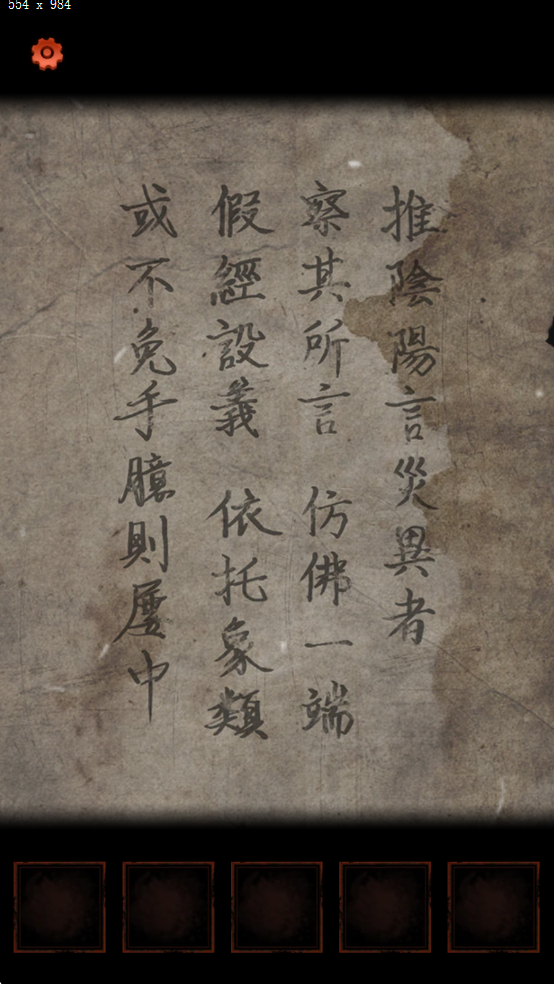 554 x 984
推陰陽言災異者
察其所言 仿佛一端
假經設義 依托象類
或不免手臆則屢中